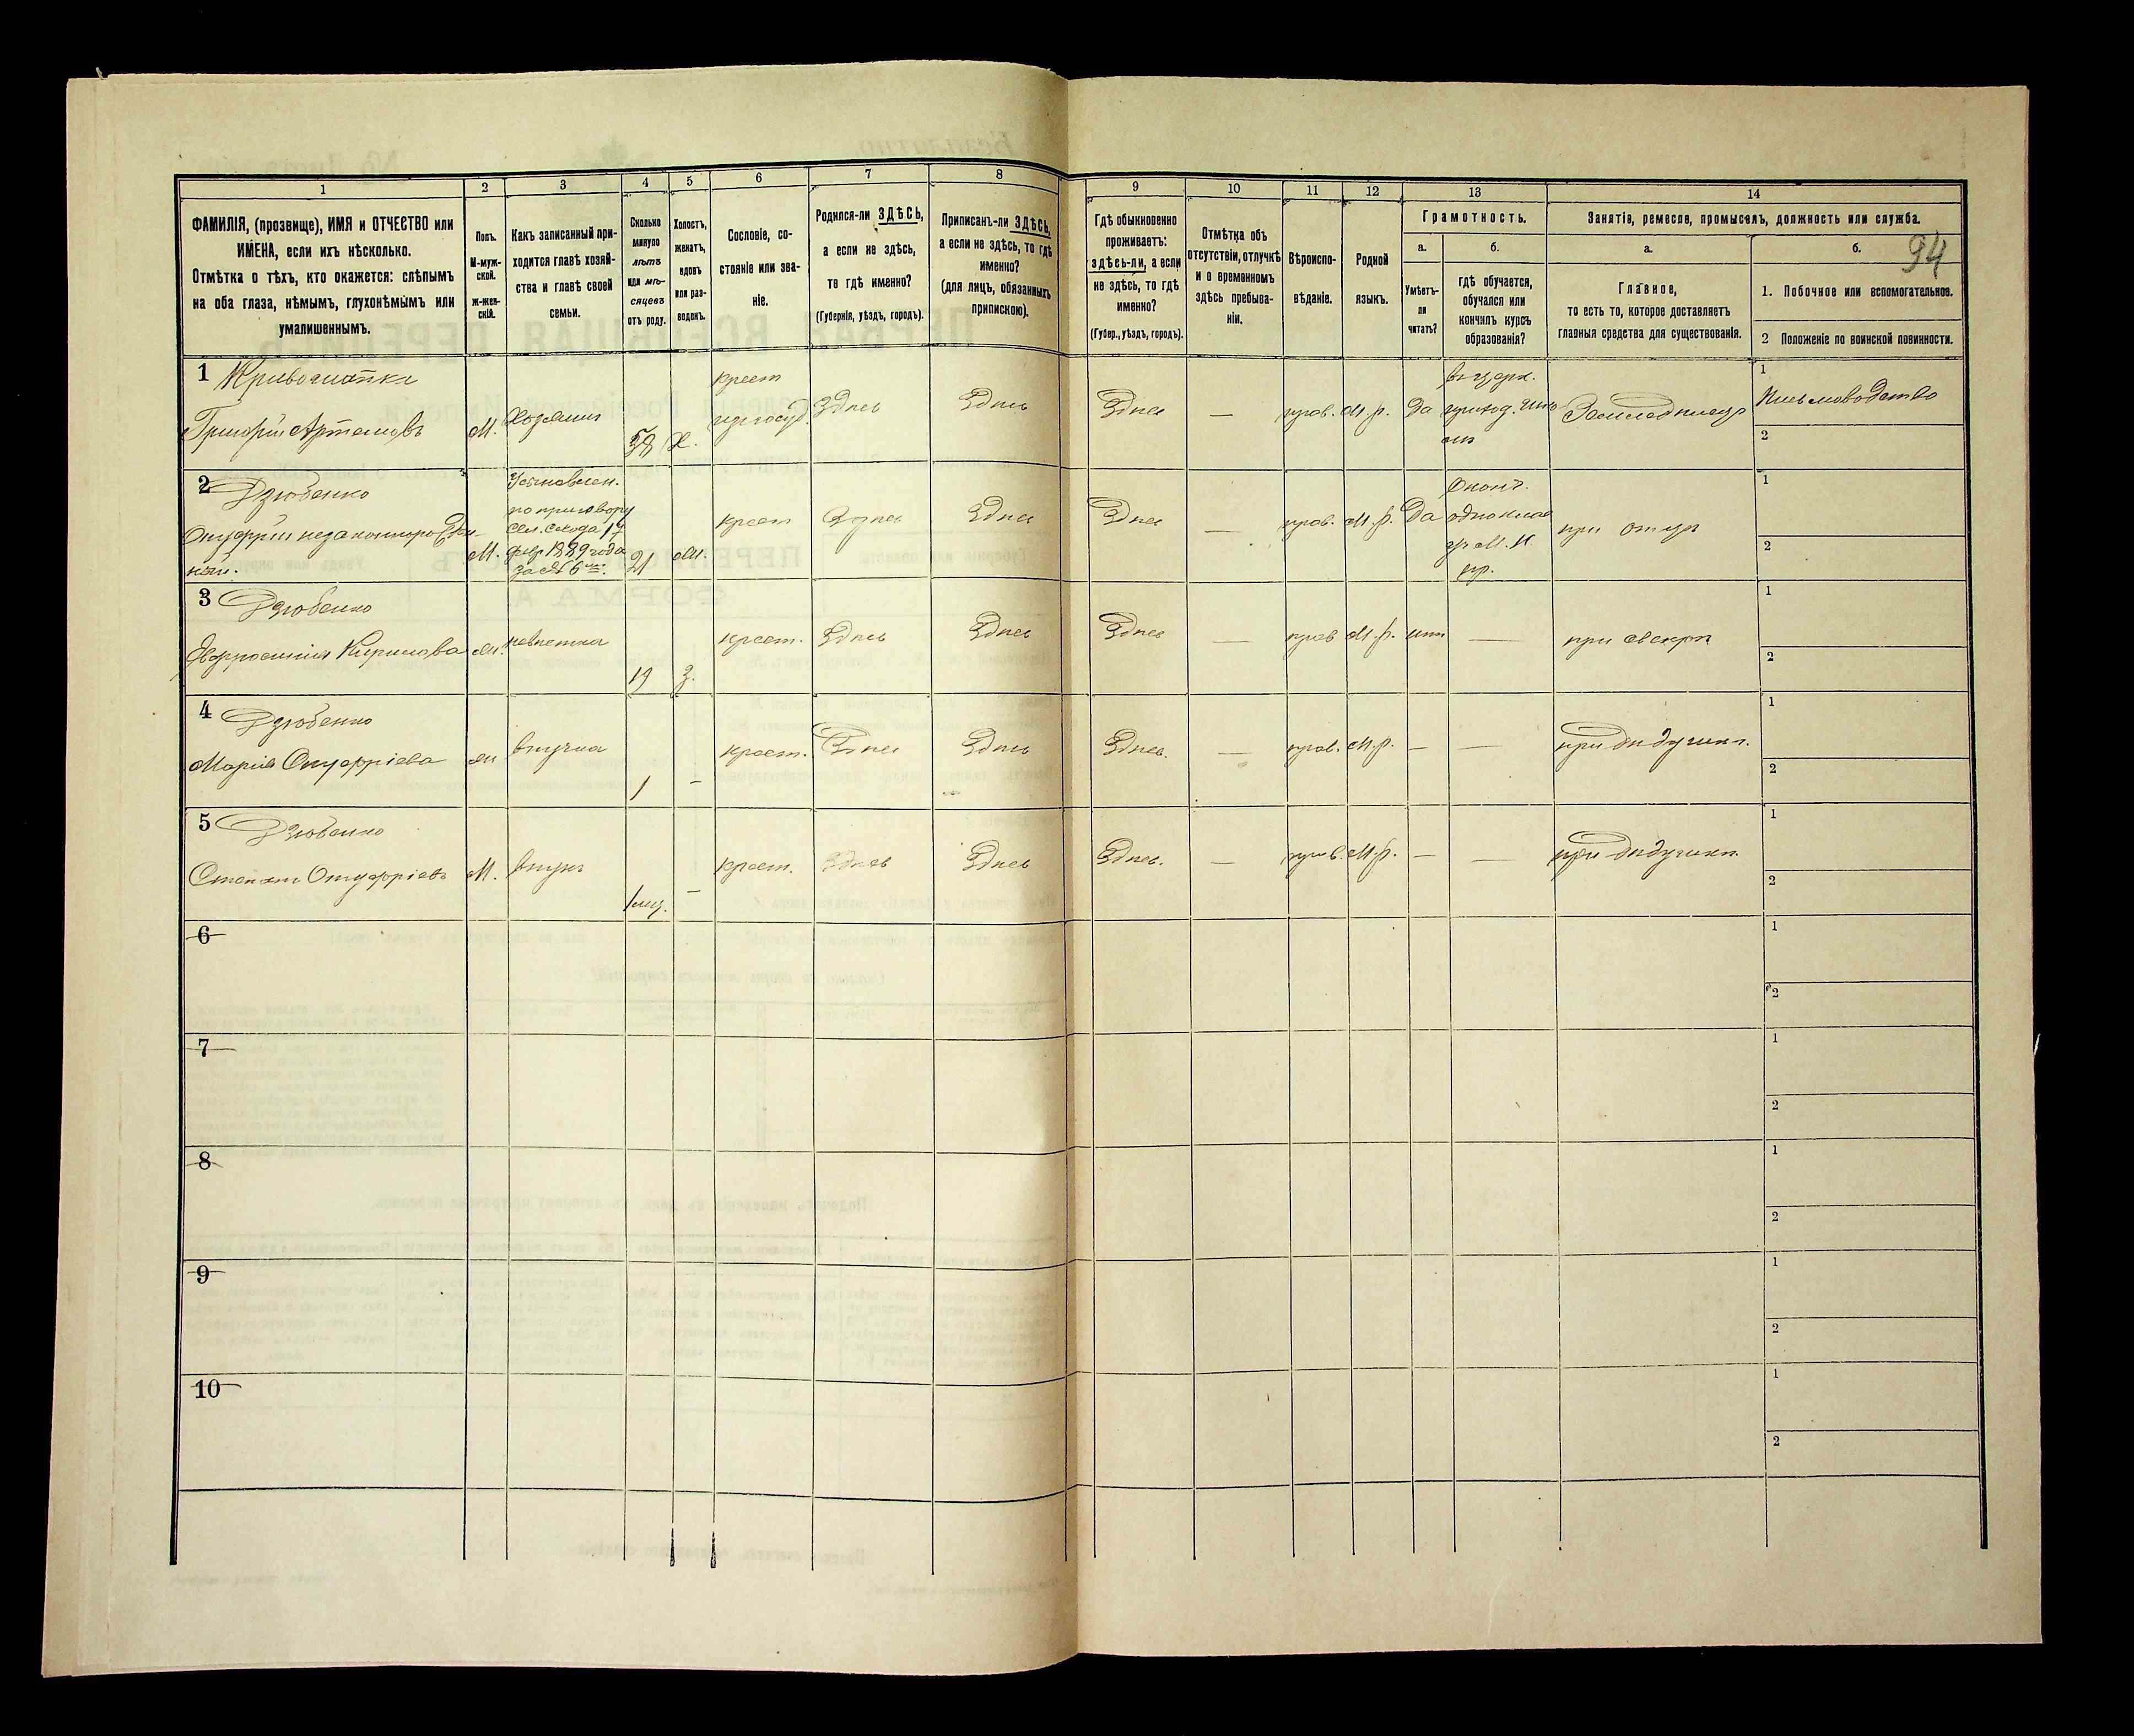 1 2 3 4 5 6 7 8 9 10 11 12 13 14
ФАМИЛІЯ, (прозвище), ИМЯ и ОТЧЕСТВО или
ИМЕНА, если ихъ нѣсколько.
Отмѣтка о тѣхъ, кто окажется: слѣпымъ
на оба глаза, нѣмымъ, глухонѣмымъ или
умалишеннымъ.
Полъ.
М-муж-
ской.
ж-жен-
скій.
Какъ записанный при-
ходится главѣ хозяй-
ства и главѣ своей
семьи.
Сколько
минуло
лѣтъ
или мѣ-
сяцевъ
отъ роду.
Холостъ,
женатъ,
вдовъ
или раз-
веденъ.
Сословіе, со-
стояніе или зва-
ніе.
Родился-ли ЗДѢСЬ,
а если не здѣсь,
то гдѣ именно?
(Губернія, уѣздъ, городъ).
Приписанъ-ли ЗДѢСЬ,
а если не здѣсь, то гдѣ
именно?
(для лицъ, обязанныхъ
припискою).
Гдѣ обыкновенно
проживаетъ:
здѣсь-ли, а если
не здѣсь, то гдѣ
именно?
(Губер., уѣздъ, городъ).
Отмѣтка объ
отсутствіи, отлучкѣ
и о временномъ
здѣсь пребыва-
ніи.
Вѣроиспо-
вѣданіе.
Родной
языкъ.
Грамотность.
а.
Умѣетъ-
ли
читать?
б.
гдѣ обучается,
обучался или
кончилъ курсъ
образованія?
Занятіе, ремесло, промыселъ, должность или служба.
а.
Главное,
то есть то, которое доставляетъ
главныя средства для существованія.
б.
94
1. Побочное или вспомогательное.
2 Положеніе по воинской повинности.
1
Григорій Артемовъ
М.
Хозяинъ
58
Х.
крест
изъ госуд.
Здѣсь
Здѣсь
Здѣсь
—
прав.
М.р.
Да
въ церк.
приход.
Земледѣлецъ
1
Письмоводство
2
2 Дзюбенко
Онуфрій незаконнорожден-
ный.
М.
Усыновлен.
по приговору
сел. схода 14
1889 года
за № 6
21
крест
Здѣсь
Здѣсь
Здѣсь
—
прав.
М.р.
Да
Оконч.
одноклас
при отцѣ
1
2
3 Дзюбенко
Евфросинія Кирилова
невѣстка
19
З.
крест.
Здѣсь
Здѣсь
Здѣсь
—
прав
М.р.
нѣтъ
—
при свекрѣ
1
2
4 Дзюбенко
Марія Онуфріева
внучка
1
-
крест.
Здѣсь
Здѣсь
Здѣсь.
—
прав.
М.р.
—
—
при дѣдушкѣ.
1
2
5 Дзюбенко
Степанъ Онуфріевъ
М.
внукъ
1 мѣс.
-
крест.
Здѣсь
Здѣсь
Здѣсь.
—
прав.
М.р.
—
—
при дѣдушкѣ.
1
2
6
1
2
7
1
2
8
1
2
9
1
2
10
1
2